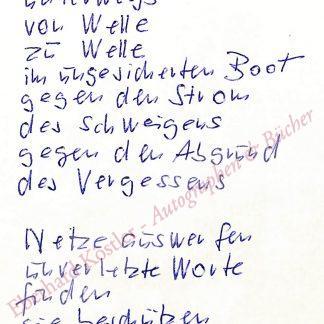 unterwegs
von Welle
zu Welle
im ungesicherten Boot
gegen den Strom
des Schweigens
gegen den Abgrund
des Vergessens
Netze auswerfen
unverletzte Worte
finden
sie beschützen
Eberhard Köstler - Autographen & Bücher